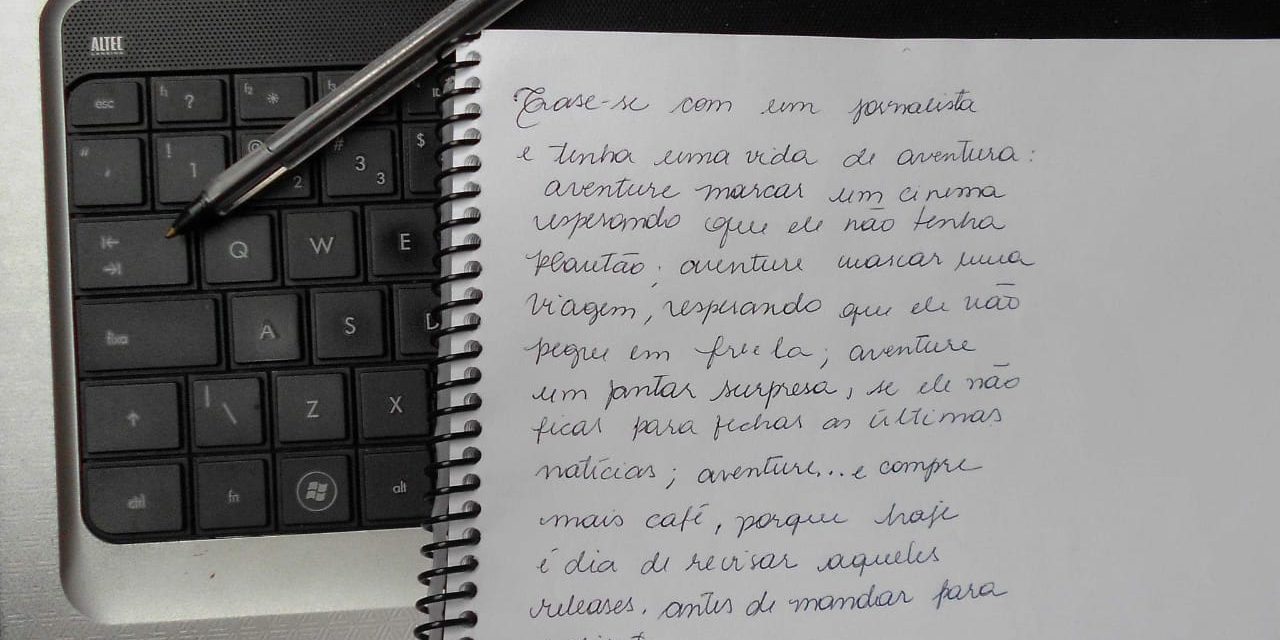 ALTEC
LANSING
esc f1 ? f2 *
! 1 @ 2 # 3 3 $
Q W E
fixa A S D
| \ Z X
ctrl fn alt
Case-se com um jornalista
e tenha uma vida de aventura:
aventure marcar um cinema
esperando que ele não tenha
plantão; aventure marcar uma
viagem, esperando que ele não
pegue em freela; aventure
um jantar surpresa, se ele não
ficar para fechar as últimas
notícias; aventure... e compre
mais café, porque hoje
é dia de revisar aqueles
releases. antes de mandar para